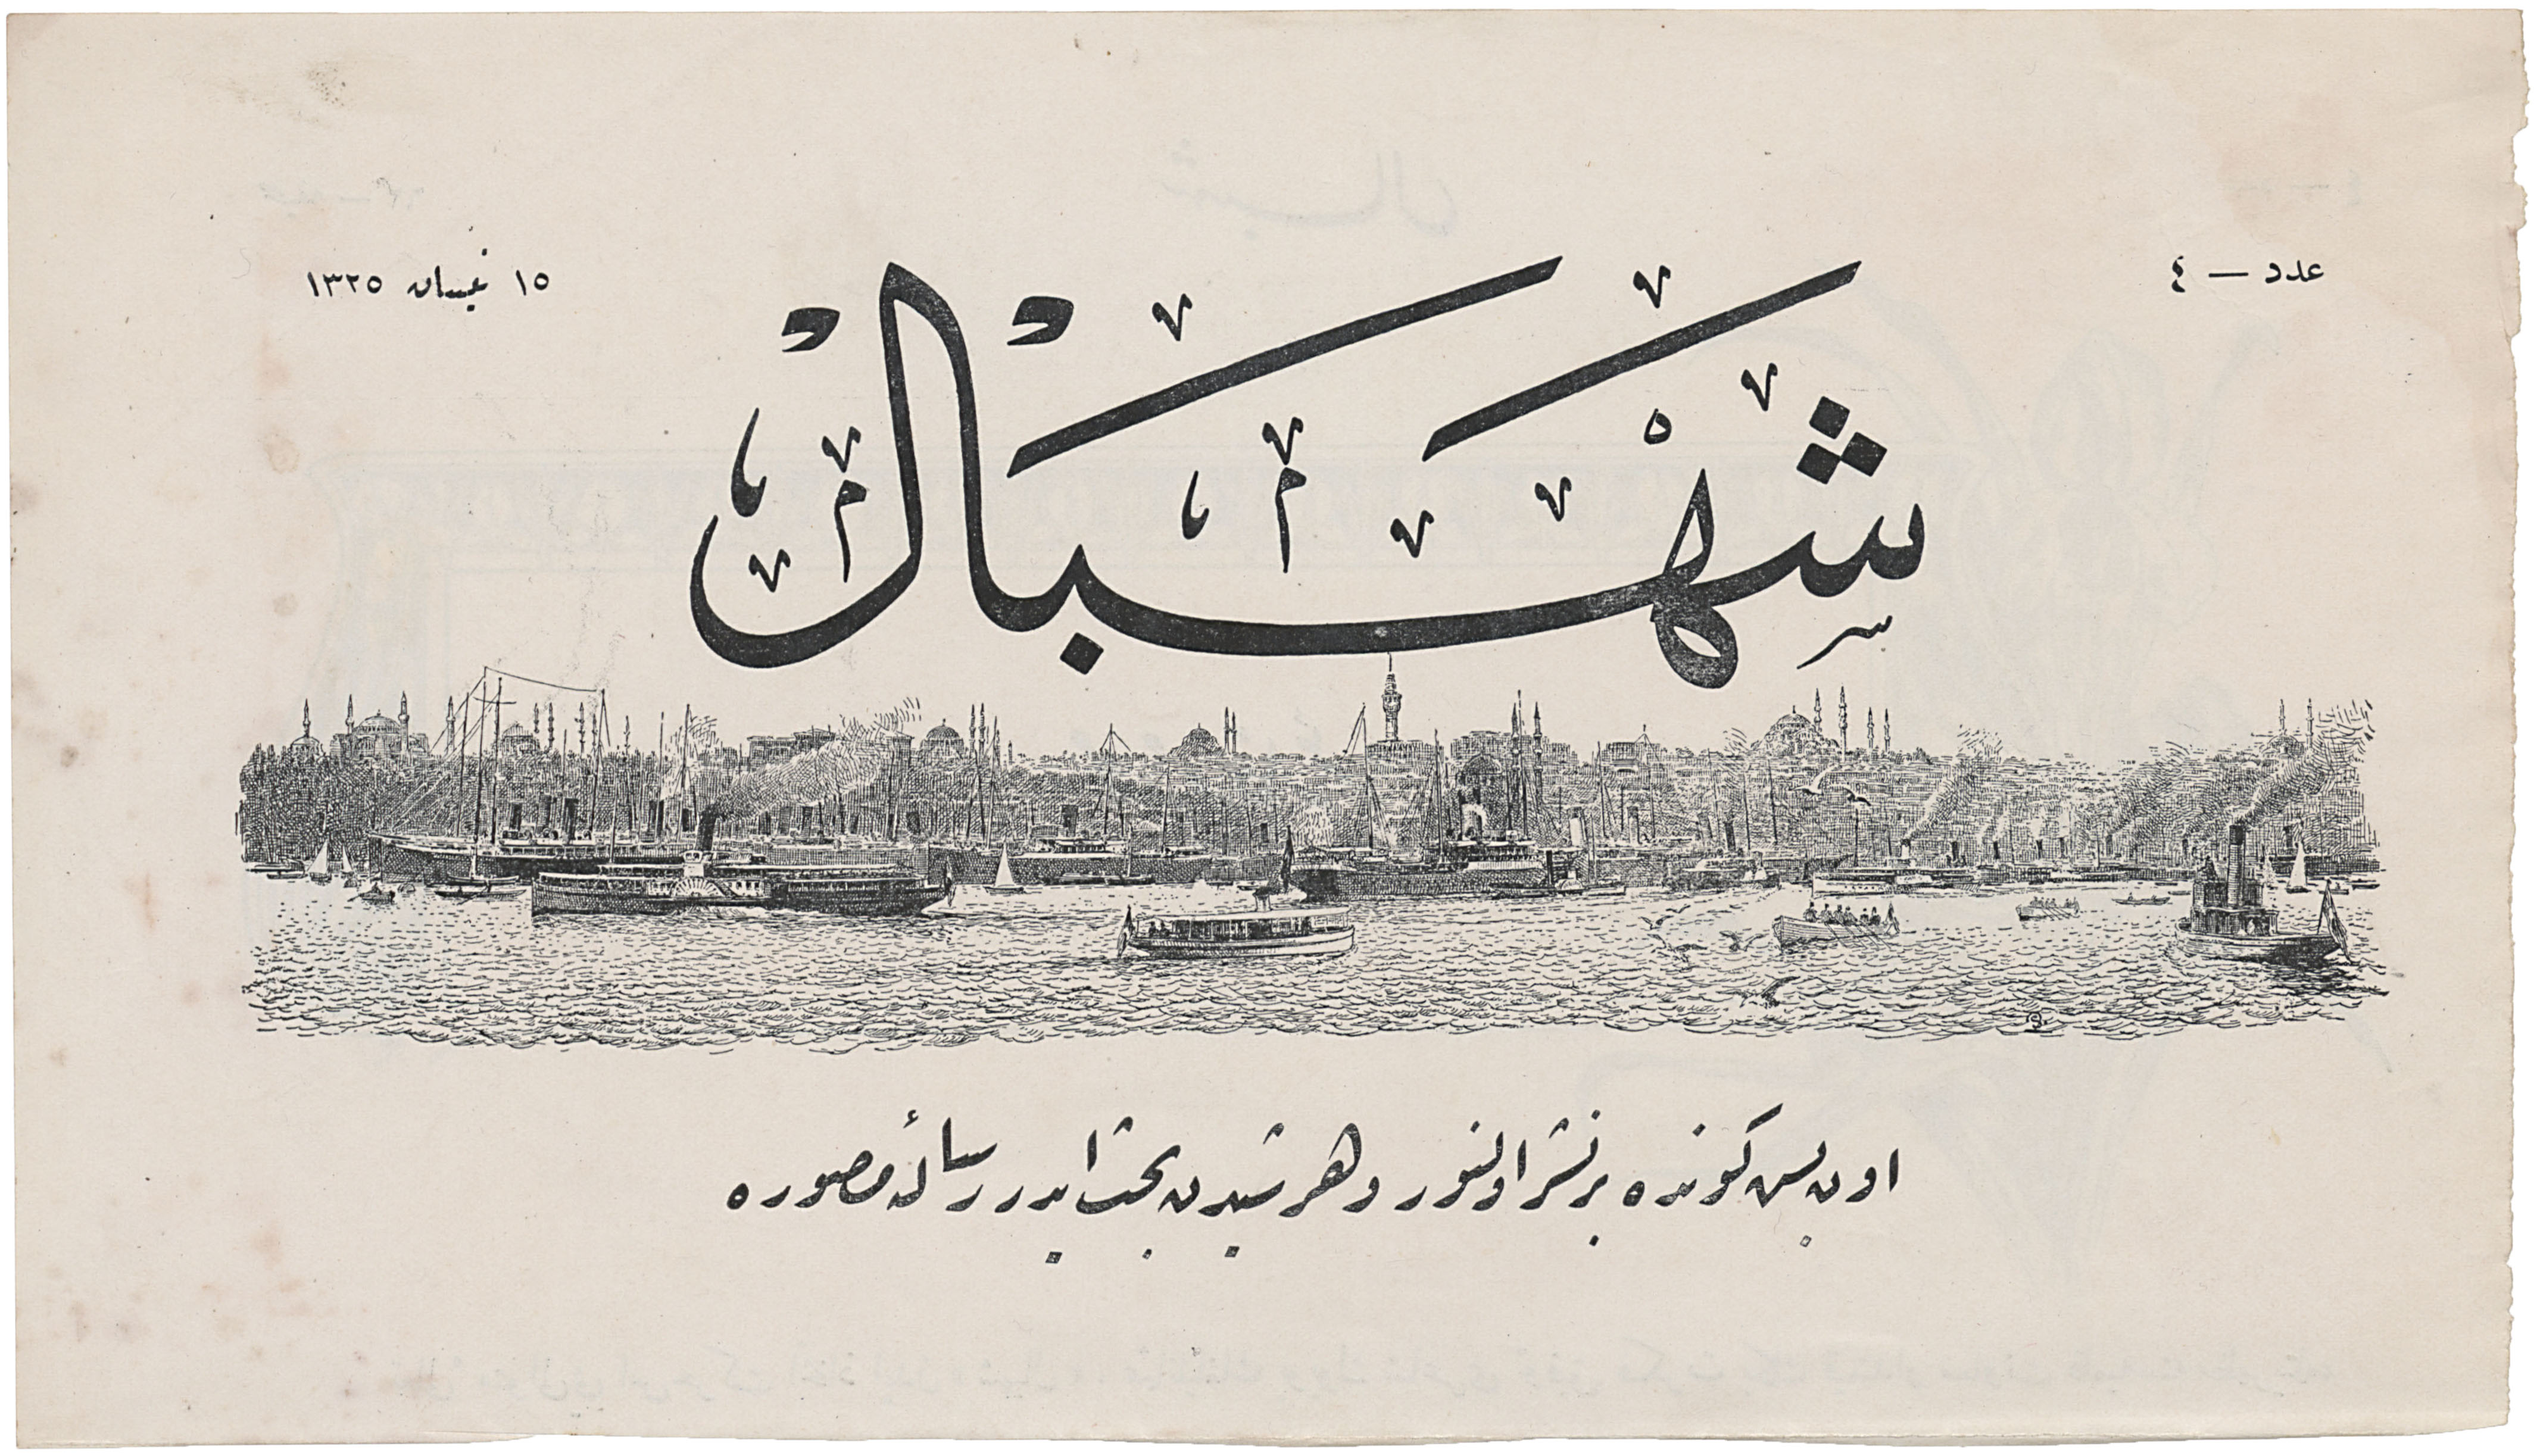 عدد — ٤
١٥ نيسان ١٣٢٥
شهبال
اون بش كونده بر نشر اولنور و هر شیدن بحث ایدر رسالهٔ مصوره